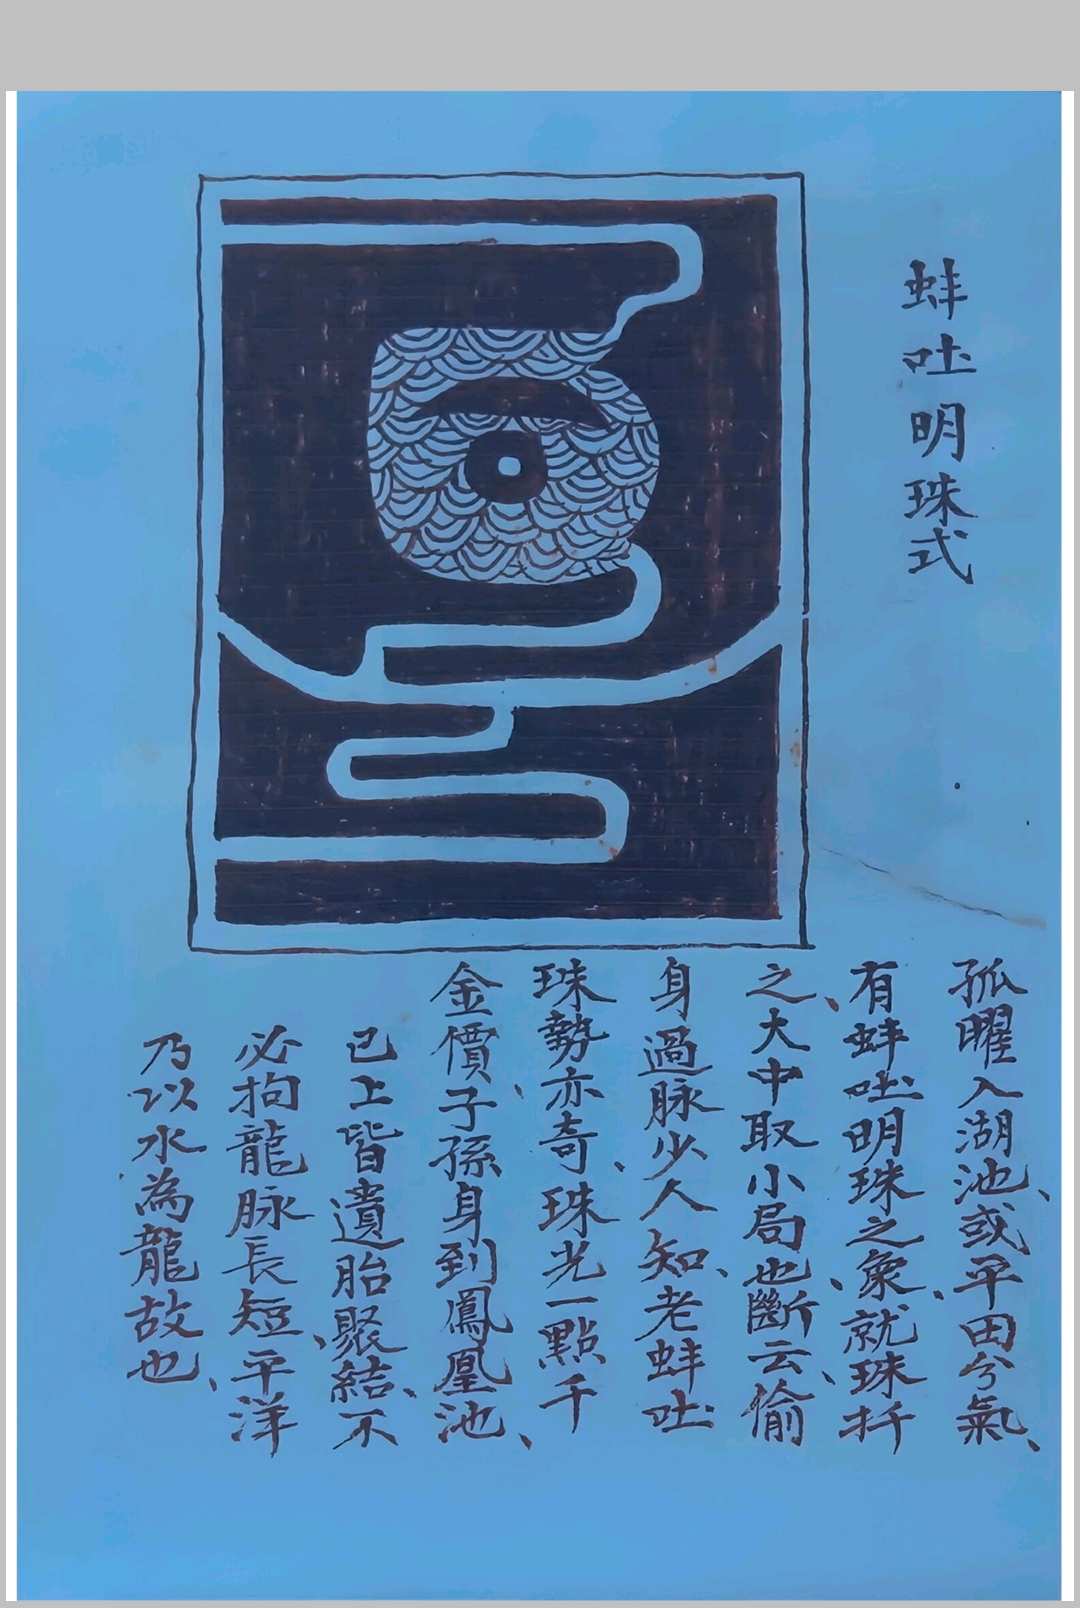 蚌吐明珠式
孤曜入湖池、或平田兮氣、
有蚌吐明珠之象、就珠扦
之、大中取小局也、斷云、偷
身過脉少人知、老蚌吐
珠勢亦奇、珠光一點千
金價、子孫身到鳳凰池、
已上皆遺胎聚結、不
必拘龍脉長短、平洋
乃以水為龍故也、